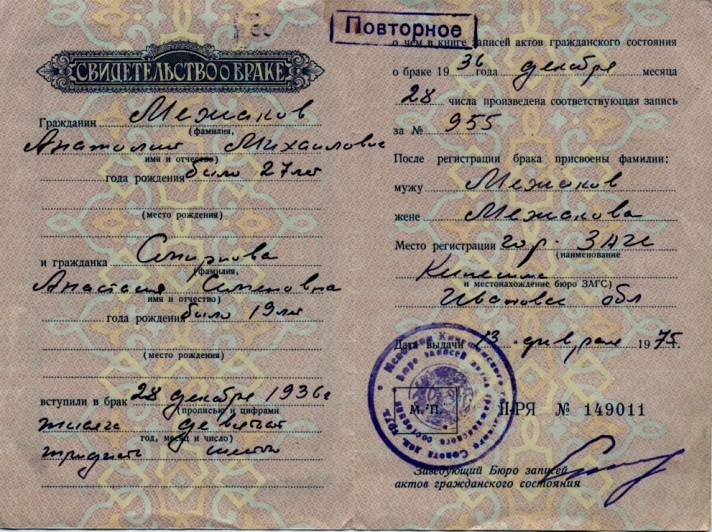 Повторное
СВИДЕТЕЛЬСТВО О БРАКЕ
Гражданин Межаков
(фамилия,
Анатолий Михайлович
имя и отчество)
года рождения было 27 лет
(место рождения)
и гражданка Смирнова
(фамилия,
Анастасия Семеновна
имя и отчество)
года рождения было 19 лет
(место рождения)
вступили в брак 28 декабря 1936 г
(прописью и цифрами
тысяча девятьсот
год, месяц и число)
тридцать шестого
о чем в книге записей актов гражданского состояния
о браке 1936 года декабря месяца
28 числа произведена соответствующая запись
за № 955
После регистрации брака присвоены фамилии:
мужу Межаков
жене Межакова
Место регистрации гор. ЗАГС
(наименование
Кинешма
и местонахождение бюро ЗАГС)
Ивановск обл
Дата выдачи 13 февраля 1975г.
М. П.
II-РЯ № 149011
Заведующий Бюро записей
актов гражданского состояния